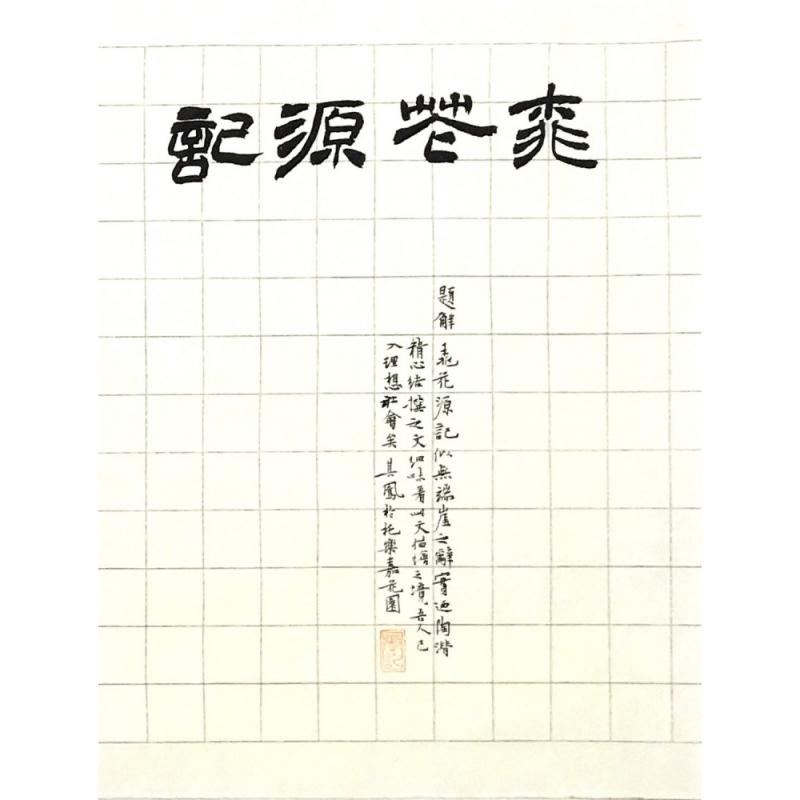 桃花源記
題解 桃花源記似無端崖之辭實迺陶潛
精心結撰之文細味看此文描繪之境吾人已
入理想社會矣 其鳳於托樂嘉花園